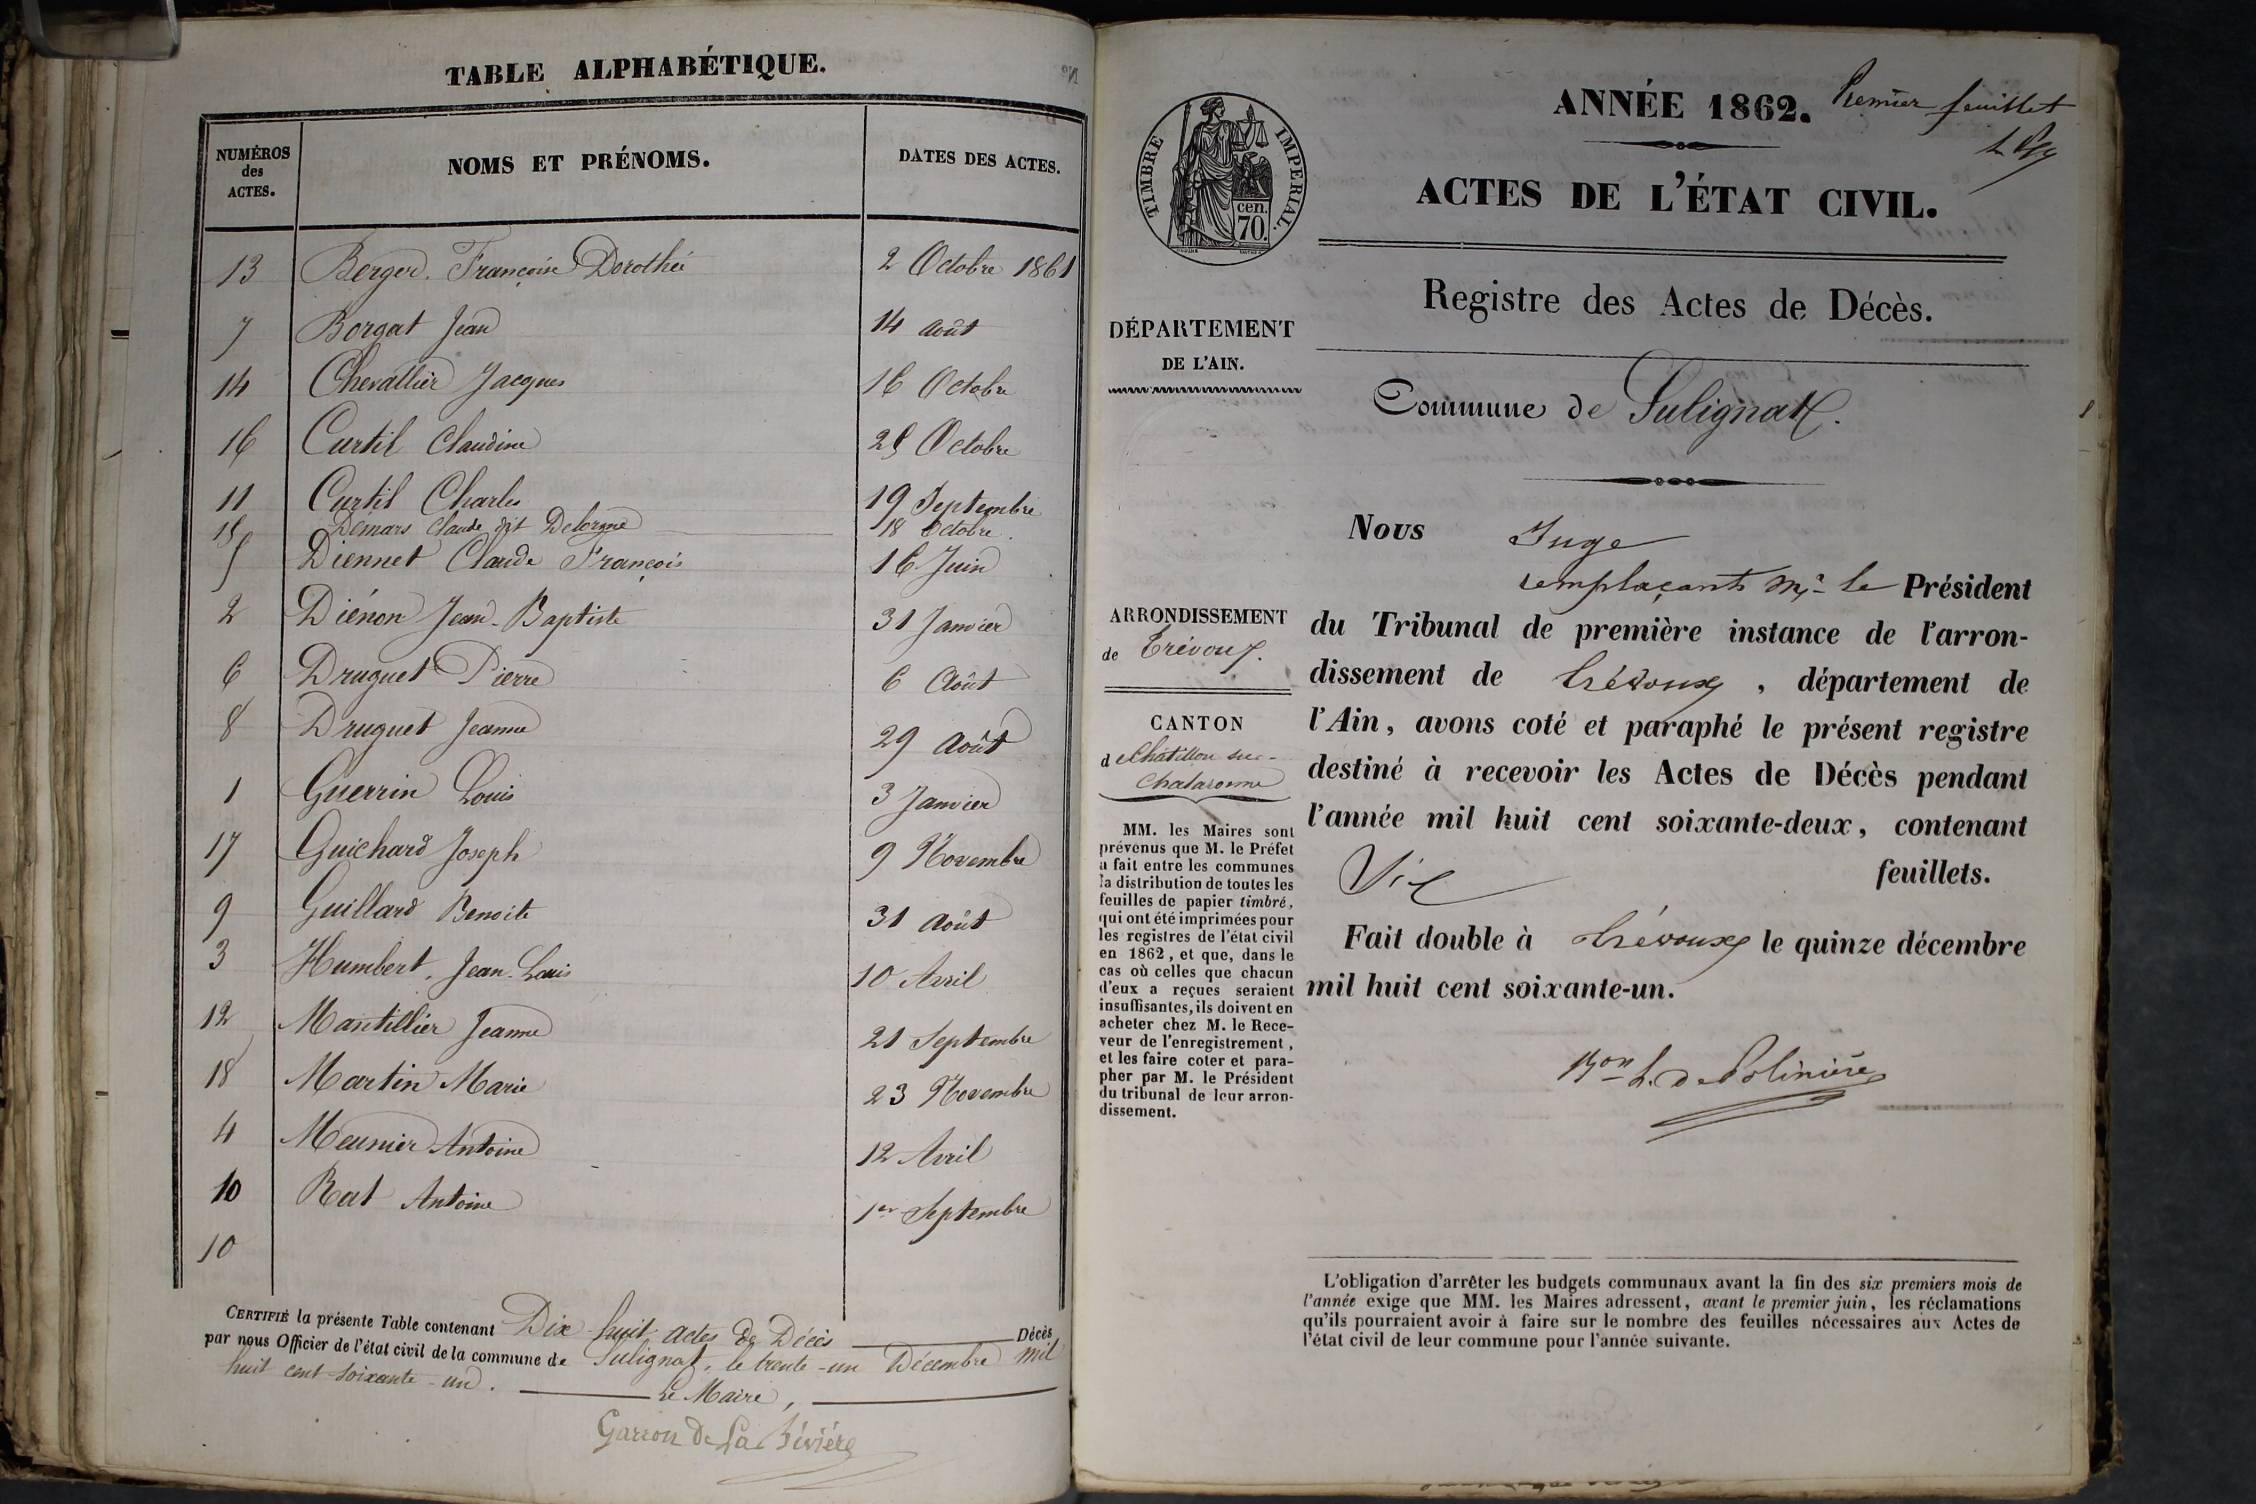 TABLE ALPHABÉTIQUE.
NUMÉROS des ACTES. NOMS ET PRÉNOMS. DATES DES ACTES.
13 Berger Françoise Dorothée 2 Octobre 1861
7 Borgat Jean 14 Août
14 Chevallier Jacques 16 Octobre
16 Curtil Claudine 25 Octobre
11 Curtil Charles 19 Septembre
15 Demars Claude dit Delorme 18 Octobre.
5 Diennet Claude François 16 Juin
2 Diénon Jean-Baptiste 31 Janvier
6 Druguet Pierre 6 Août
8 Druguet Jeanne 29 Août
1 Guerrin Louis 3 Janvier
17 Guichard Joseph 9 Novembre
9 Guillard Benoite 31 Août
3 Humbert, Jean-Louis 10 Avril
12 Mantillier Jeanne 21 Septembre
18 Martin Marie 23 Novembre
4 Meunier Antoine 12 Avril
10 Rat Antoine 1er Septembre
10
CERTIFIÉ la présente Table contenant Dix huit actes de Décès Décès
par nous Officier de l'état civil de la commune de Sulignat, le trente-un Décembre mil
huit cent soixante-un.
Le Maire,
Garron de La Bévière
TIMBRE IMPERIAL.
cen.
70.
ANNÉE 1862. Premier feuillet
ACTES DE L'ÉTAT CIVIL.
Registre des Actes de Décès.
DÉPARTEMENT
DE L'AIN.
Commune de Sulignat.
ARRONDISSEMENT
de Trévoux.
CANTON
de Châtillon sur-
Chalaronne
MM. les Maires sont
prévenus que M. le Préfet
a fait entre les communes
la distribution de toutes les
feuilles de papier timbré,
qui ont été imprimées pour
les registres de l'état civil
en 1862, et que, dans le
cas où celles que chacun
d'eux a reçues seraient
insuffisantes, ils doivent en
acheter chez M. le Rece-
veur de l'enregistrement,
et les faire coter et para-
pher par M. le Président
du tribunal de leur arron-
dissement.
Nous Juge
remplaçant Mr le Président
du Tribunal de première instance de l'arron-
dissement de Trévoux, département de
l'Ain, avons coté et paraphé le présent registre
destiné à recevoir les Actes de Décès pendant
l'année mil huit cent soixante-deux, contenant
Six feuillets.
Fait double à Trévoux le quinze décembre
mil huit cent soixante-un.
Bon L. de Polinière
L'obligation d'arrêter les budgets communaux avant la fin des six premiers mois de
l'année exige que MM. les Maires adressent, avant le premier juin, les réclamations
qu'ils pourraient avoir à faire sur le nombre des feuilles nécessaires aux Actes de
l'état civil de leur commune pour l'année suivante.